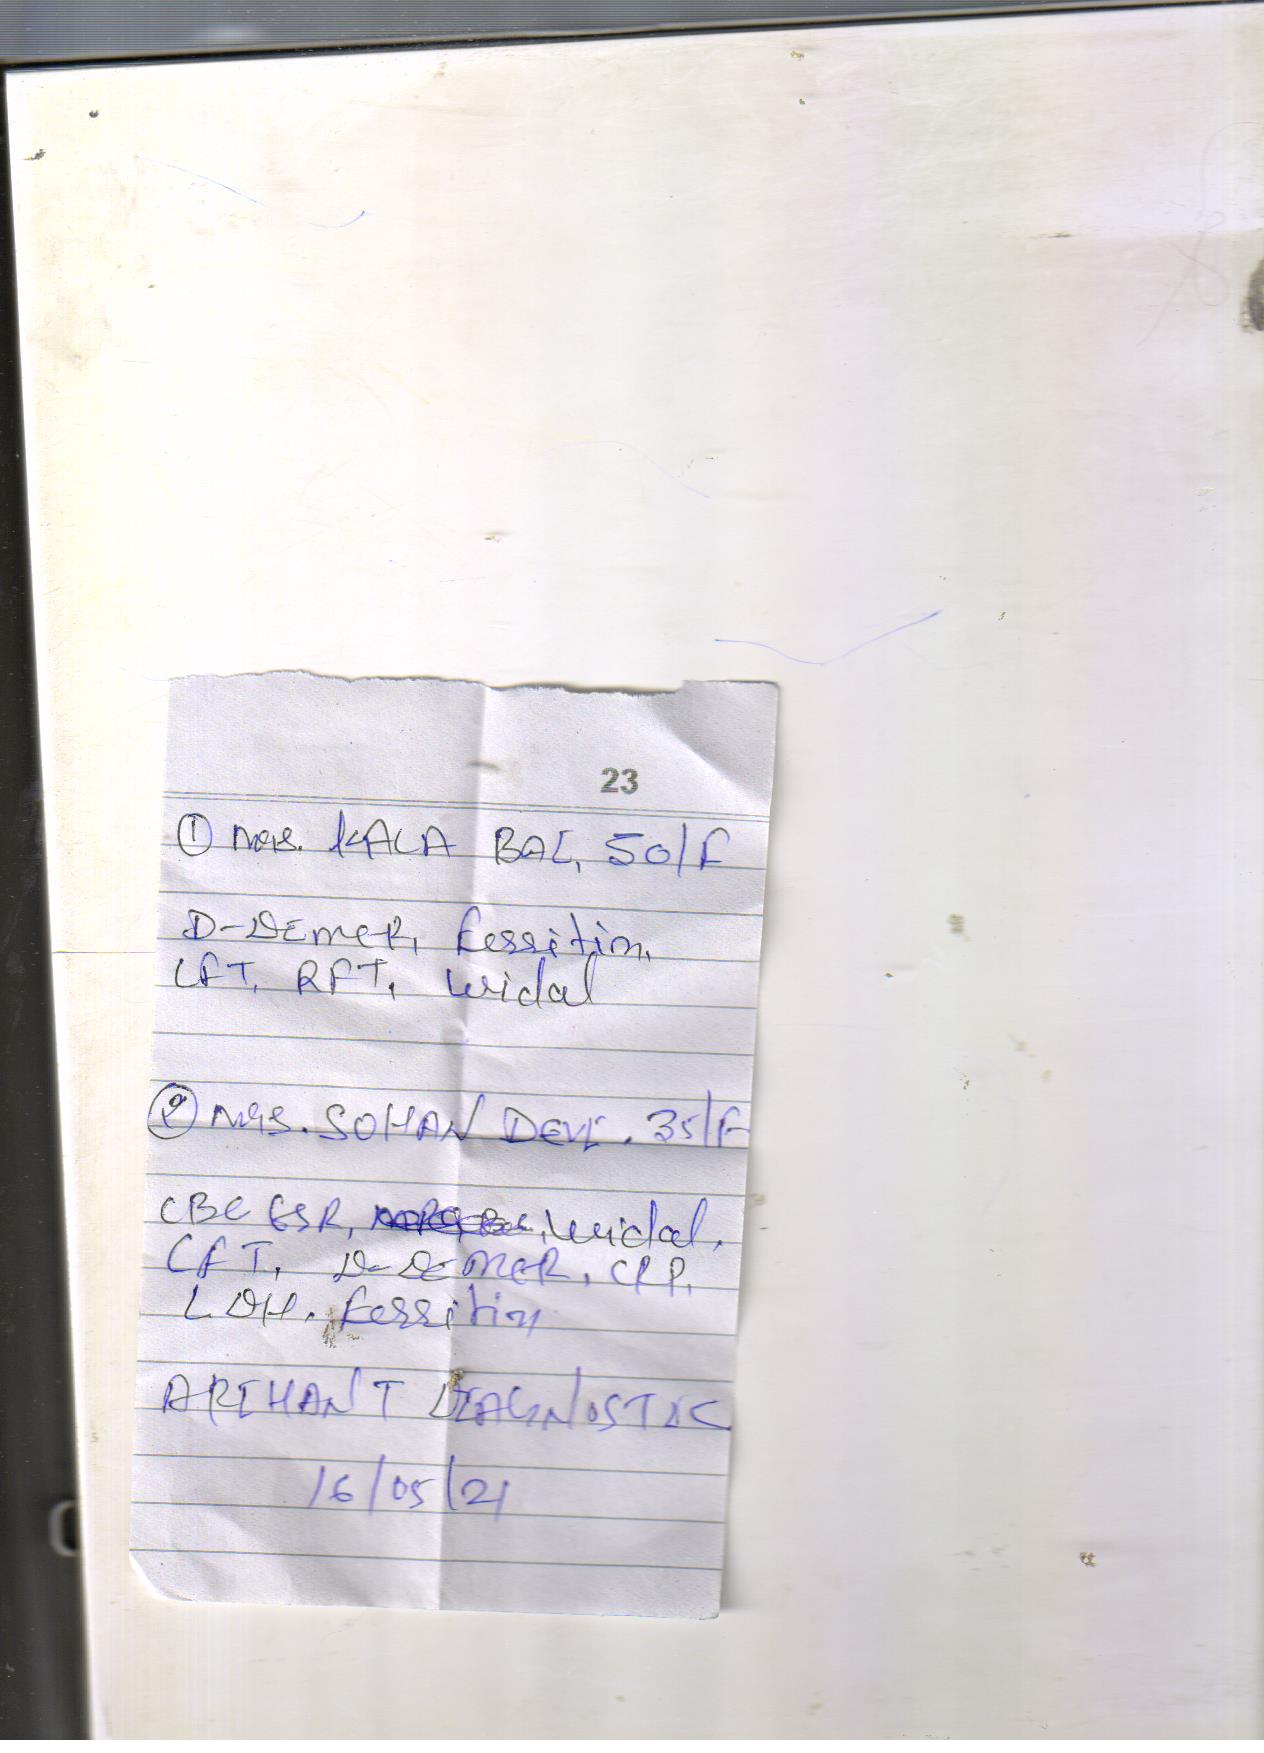 23
① Mrs. KALA BAI, 50/F
D-DIMER, Ferritin,
LFT, RFT, Widal
② Mrs. SOHAN DEVI. 35/F
CBC ESR, Widal,
LFT, D-DIMER, CRP,
LDH. Ferritin
ARIHANT DIAGNOSTIC
16/05/21